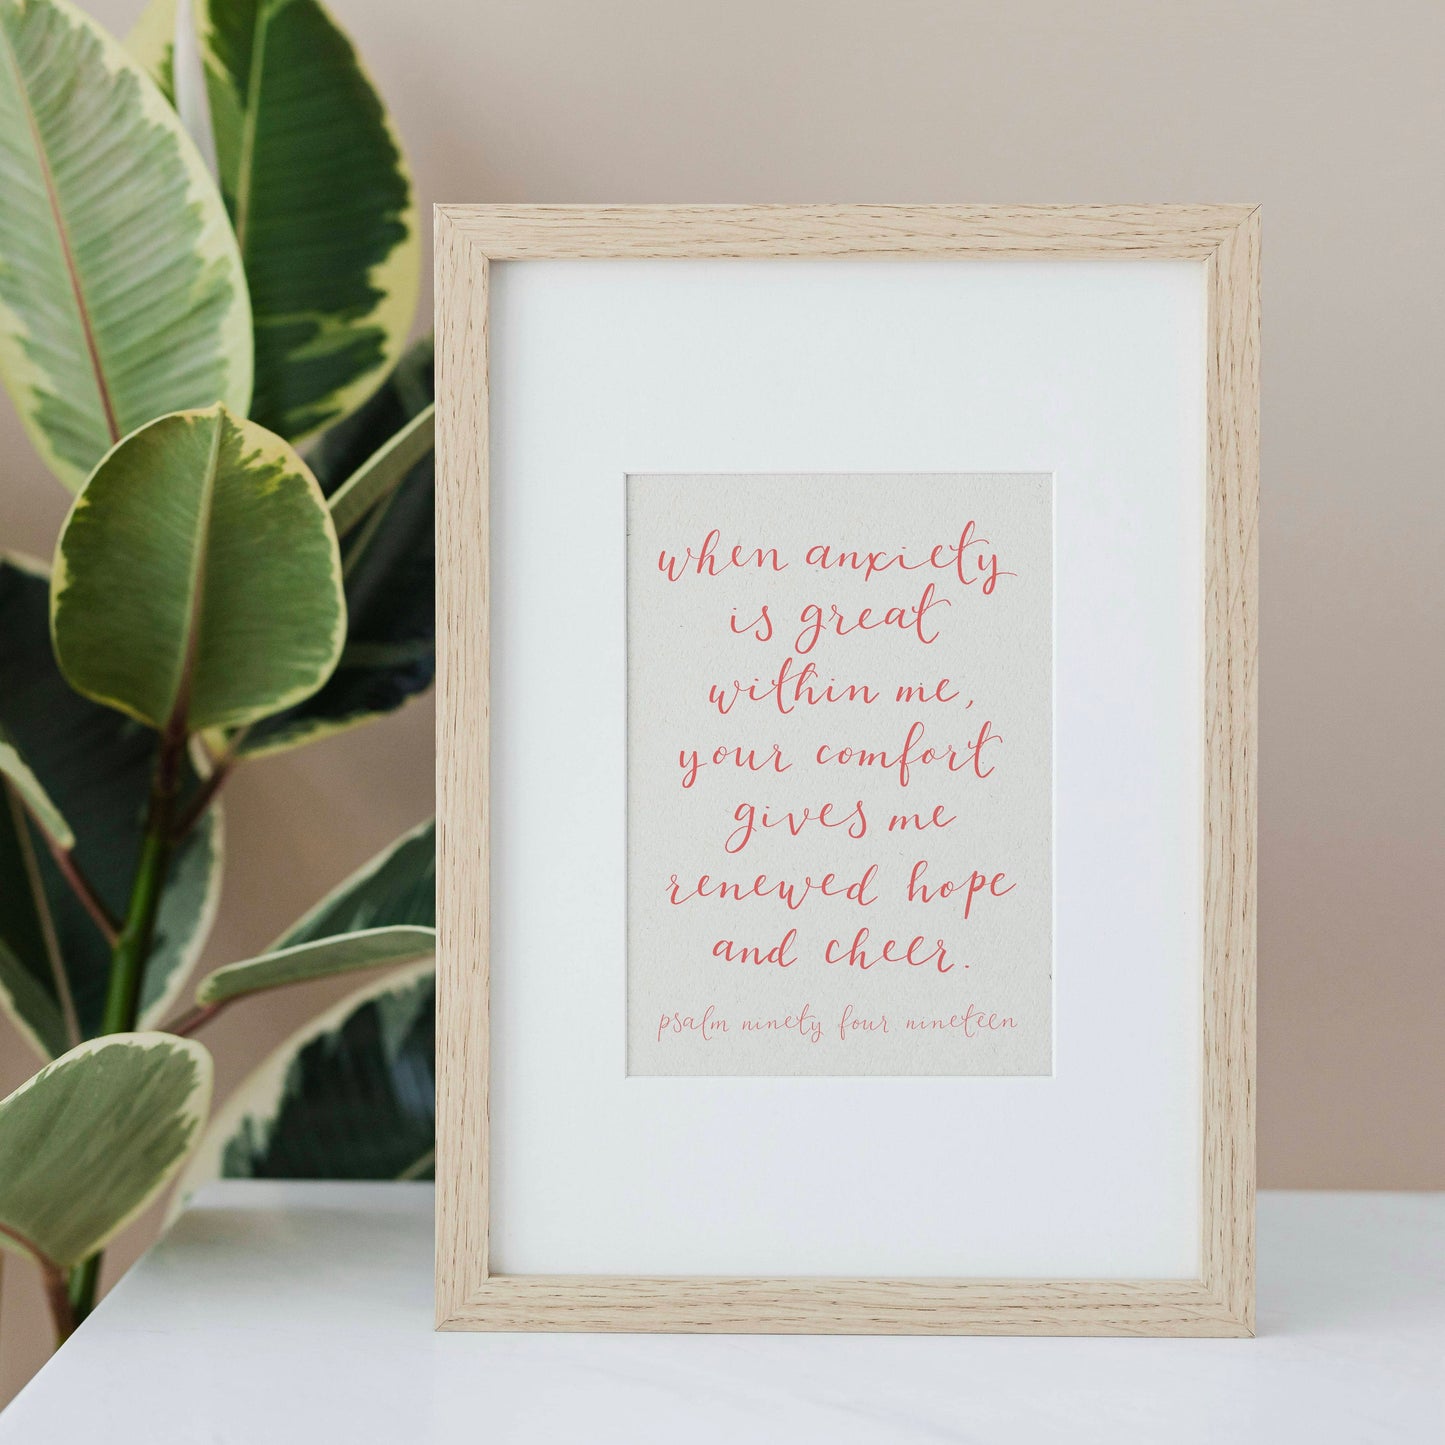 when anxiety
is great
within me,
your comfort
gives me
renewed hope
and cheer.
psalm ninety four nineteen